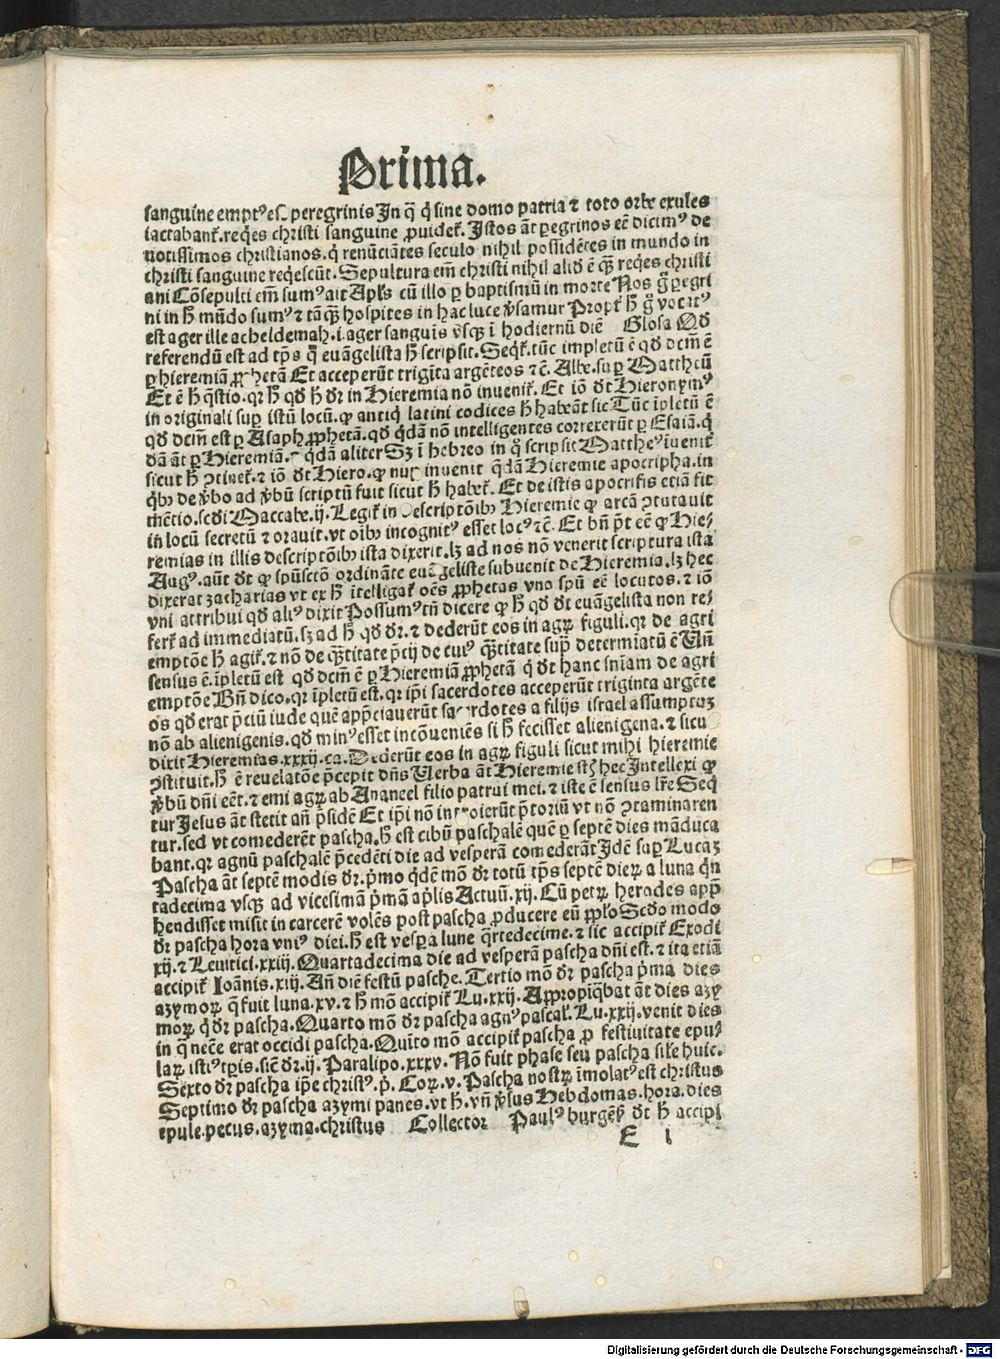 Prima.
sanguine empt⁹ es peregrinis In q̄ q̇ sine domo patria ⁊ toto orbe exules
iactabant̄. req̇es christi sanguine ꝓuidet̄. Istos āt ꝑegrinos eē dicim⁹ de
uotissimos christianos. q̇ renūciātes seculo nihil possidētes in mundo in
christi sanguine req̇escūt. Sepultura em̄ christi nihil aliđ ē q̄ꝫ req̇es christi
ani Cōsepulti em̄ sum⁹ ait Apl̄s cū illo ꝑ baptismū in morte Nos g̊ ꝑegri
ni in h̄ mūdo sum⁹ ⁊ tāq̄ꝫ hospites in hac luce v̄samur Propt̄ h̄ g̊ vocat⁹
est ager ille acheldemah. i. ager sanguis vsqꝫ ī hodiernū diē Glosa Qđ
referendū est ad tp̄s q̄ euāgelista h̄ scripsit. Seq̄t̄. tūc impletū ē qđ dcm̄ ē
ꝑ hieremiā ꝓphetā Et acceperūt trigīta argēteos ⁊c̄. Albe. suꝑ Mattheū
Et ē h̄ q̄stio. qr h̄ qđ h̄ dr̄ in Hieremia nō invenit̄. Et iō dt̄ Hieronym⁹
in originali suꝑ istū locū. ꝙ antiq̇ latini codices h̄ habeāt sic Tūc īpletū ē
qđ dcm̄ est ꝑ Asaph ꝓphetā. qđ q̇dā nō intelligentes correxerūt ꝑ Esaiā. q̇
dā āt ꝑ Hieremiā. q̇dā aliter Sꝫ ī hebreo in q̊ scripsit Matthe⁹ īuenit̄
sicut h̄ ꝯtinet̄. ⁊ iō dt̄ Hiero. ꝙ nup inuenit q̇dā Hieremie apocripha. in
q̇bꝰ de v̄bo ad v̄bū scriptū fuit sicut h̄ habet̄. Et de istis apocrifis etiā fit
mētio. scđi Maccabe. ij. Legit̄ in descriptōibꝰ Hieremie ꝙ arcā ꝯtutauit
in locū secretū ⁊ orauit. vt oībꝰ incognit⁹ esset loc⁹ ⁊c̄. Et bn̄ p̄t eē ꝙ Hie⸗
remias in illis descriptōibꝰ ista dixerit. lꝫ ad nos nō venerit scriptura ista
Aug⁹. aūt dt̄ ꝙ spūsctō ordināte euāgeliste subuenit de Hieremia. lꝫ hec
dixerat zacharias vt ex h̄ ītelligat̄ oēs ꝓphetas vno spū eē locutos. ⁊ iō
vni attribui qđ ali⁹ dixit Possum⁹ tn̄ dicere ꝙ h̄ qđ dt̄ euāgelista non re⸗
fert̄ ad immediatū. sꝫ ad h̄ qđ dr̄. ⁊ dederūt eos in agꝝ figuli. qr de agri
emptōe h̄ agit̄. ⁊ nō de q̄titate p̄cij de cui⁹ q̄titate suꝑ determiatū ē Vn̄
sensus ē. īpletū est qđ dcm̄ ē ꝑ Hieremiā ꝓphetā q̇ dt̄ hanc sn̄iam de agri
emptōe Bn̄ dico. qr īpletū est. qr ip̄i sacerdotes acceperūt triginta argēte
os qđ erat p̄ciū iude quē app̄ciauerūt sacerdotes a filijs israel assumptoꝝ
nō ab alienigenis. qđ min⁹ esset incōueniēs si h̄ fecisset alienigena. ⁊ sicu
dixit Hieremias. xxxij. ca. Dederūt eos in agꝝ figuli sicut mihi hieremie
ꝯstituit. h̄ ē reuelatōe p̄cepit dn̄s Verba āt Hieremie sūt hec Intellexi ꝙ
v̄bū dn̄i eēt. ⁊ emi agꝝ ab Ananeel filio patrui mei. ⁊ iste ē sensus lr̄e Seq̄
tur Jesus āt stetit an̄ p̄sidē Et ip̄i nō introierūt p̄toriū vt nō ꝯtaminaren
tur. sed vt comederēt pascha. h̄ est cibū paschalē quē ꝑ septē dies māduca
bant. qr agnū paschalē p̄cedēti die ad vesperā comederāt Idē suꝑ Lucaꝫ
Pascha āt septē modis dr̄. p̄mo q̇dē mō dr̄ totū tp̄s septē dieꝝ a luna q̄r
tadecima vsqꝫ ad vicesimā p̄mā ap̄lis Actuū. xij. Cū petꝝ herodes app̄
hendisset misit in carcerē volēs post pascha ꝓducere eū ꝓplo Scđo modo
dr̄ pascha hora vni⁹ diei. h̄ est vesꝑa lune q̄rtedecime. ⁊ sic accipit̄ Exodi
xij. ⁊ Leuitici. xxiij. Quartadecima die ad vesperā pascha dn̄i est. ⁊ ita etiā
accipit̄ Ioānis. xiij. An̄ diē festū pasche. Tertio mō dr̄ pascha p̄ma dies
azymoꝝ q̄ fuit luna. xv. ⁊ h̄ mō accipit̄ Lu. xxij. Appropīq̄bat āt dies azy
moꝝ q̇ dr̄ pascha. Quarto mō dr̄ pascha agn⁹ pascal̄. Lu. xxij. venit dies
in q̄ necē erat occidi pascha. Quīto mō accipit̄ pascha ꝓ festiuitate epu⸗
laꝝ isti⁹ tꝑis. sic dr̄. ij. Paralipo. xxxv. Nō fuit phase seu pascha sil̄e huic.
Sexto dr̄ pascha ip̄e christ⁹. p̄. Coꝝ. v. Pascha nostꝝ īmolat⁹ est christus
Septimo dr̄ pascha azymi panes. vt h̄. vn̄ v̄sus Hebdomas. hora. dies
epule. pecus. azyma. christus Collector Paul⁹ burgēs̄ dt̄ h̄ accipi
E i
Digitalisierung gefördert durch die Deutsche Forschungsgemeinschaft - DFG